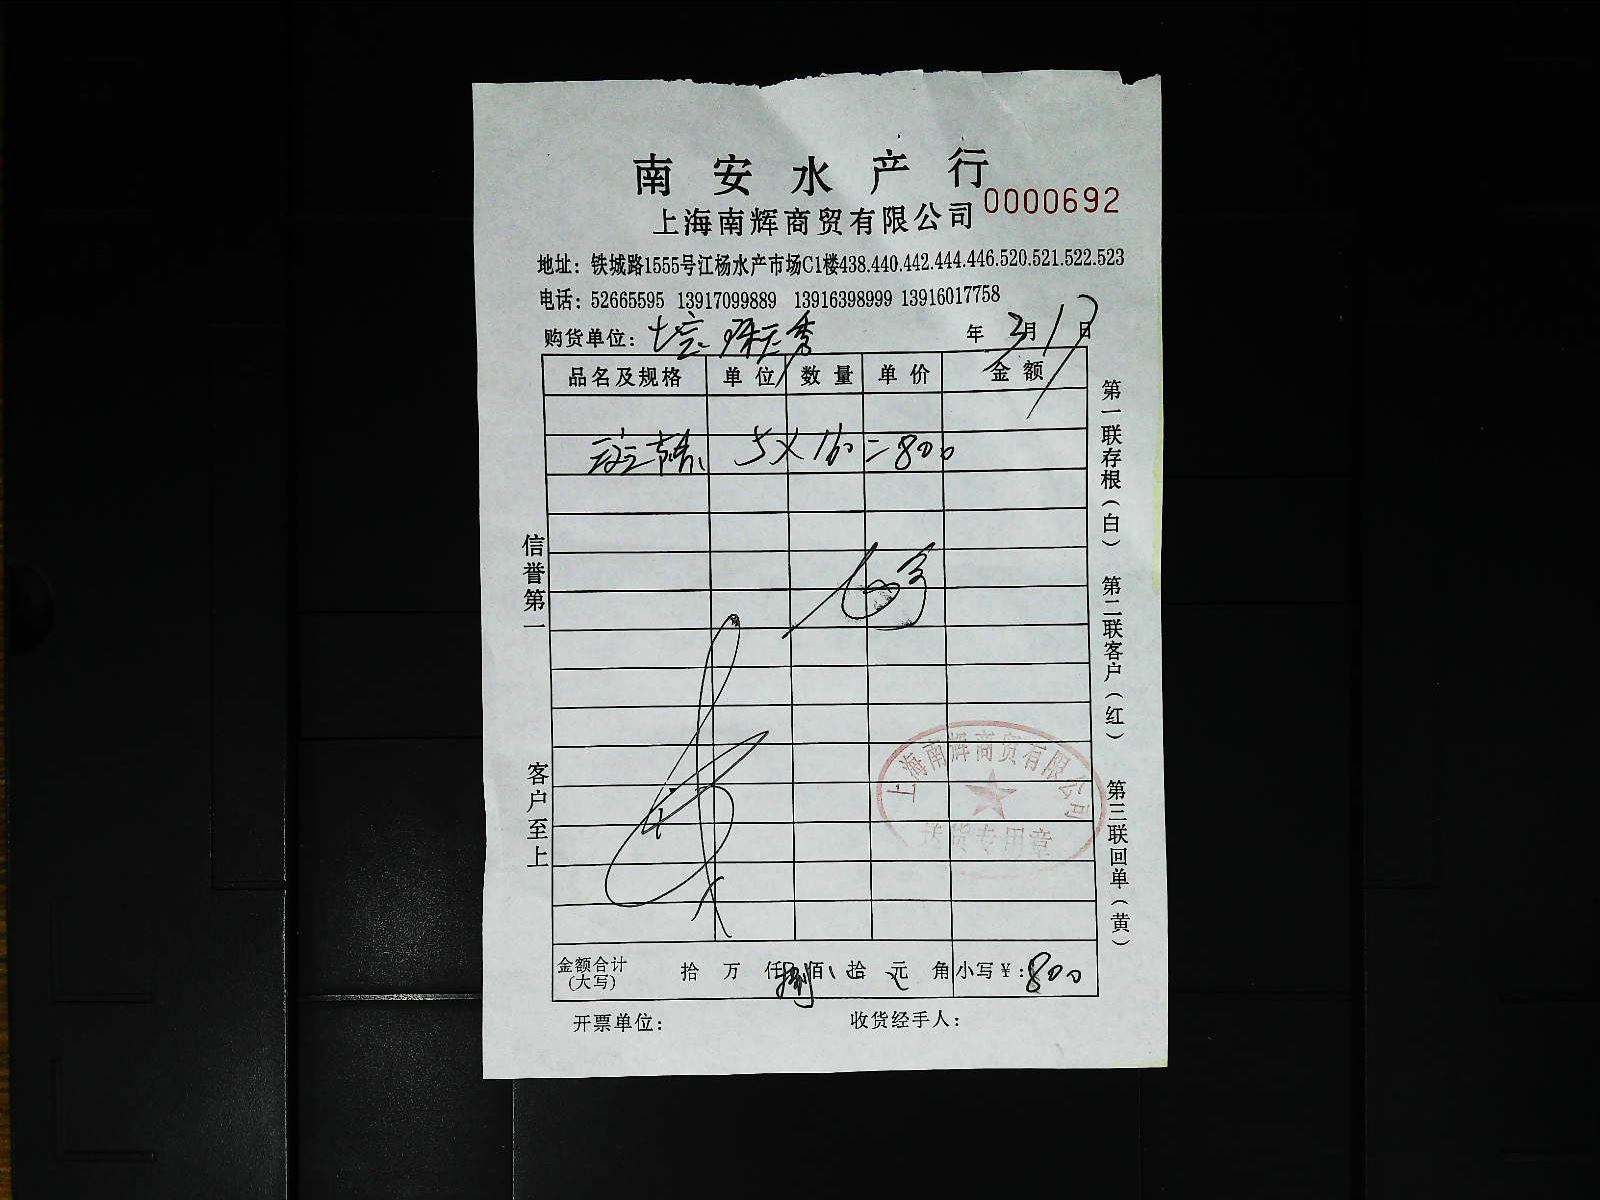 南安水产行
上海南辉商贸有限公司 0000692
地址：铁城路1555号江杨水产市场C1楼438.440.442.444.446.520.521.522.523
电话：52665595 13917099889 13916398999 13916017758
购货单位： 年 3月17日
品名及规格 单位 数量 单价 金额
5×160=800
信誉第一
客户至上
第一联存根（白） 第二联客户（红） 第三联回单（黄）
上海南辉商贸有限公司
送货专用章
金额合计（大写） 拾 万 仟 捌佰 拾 元 角 小写￥：800
开票单位： 收货经手人：